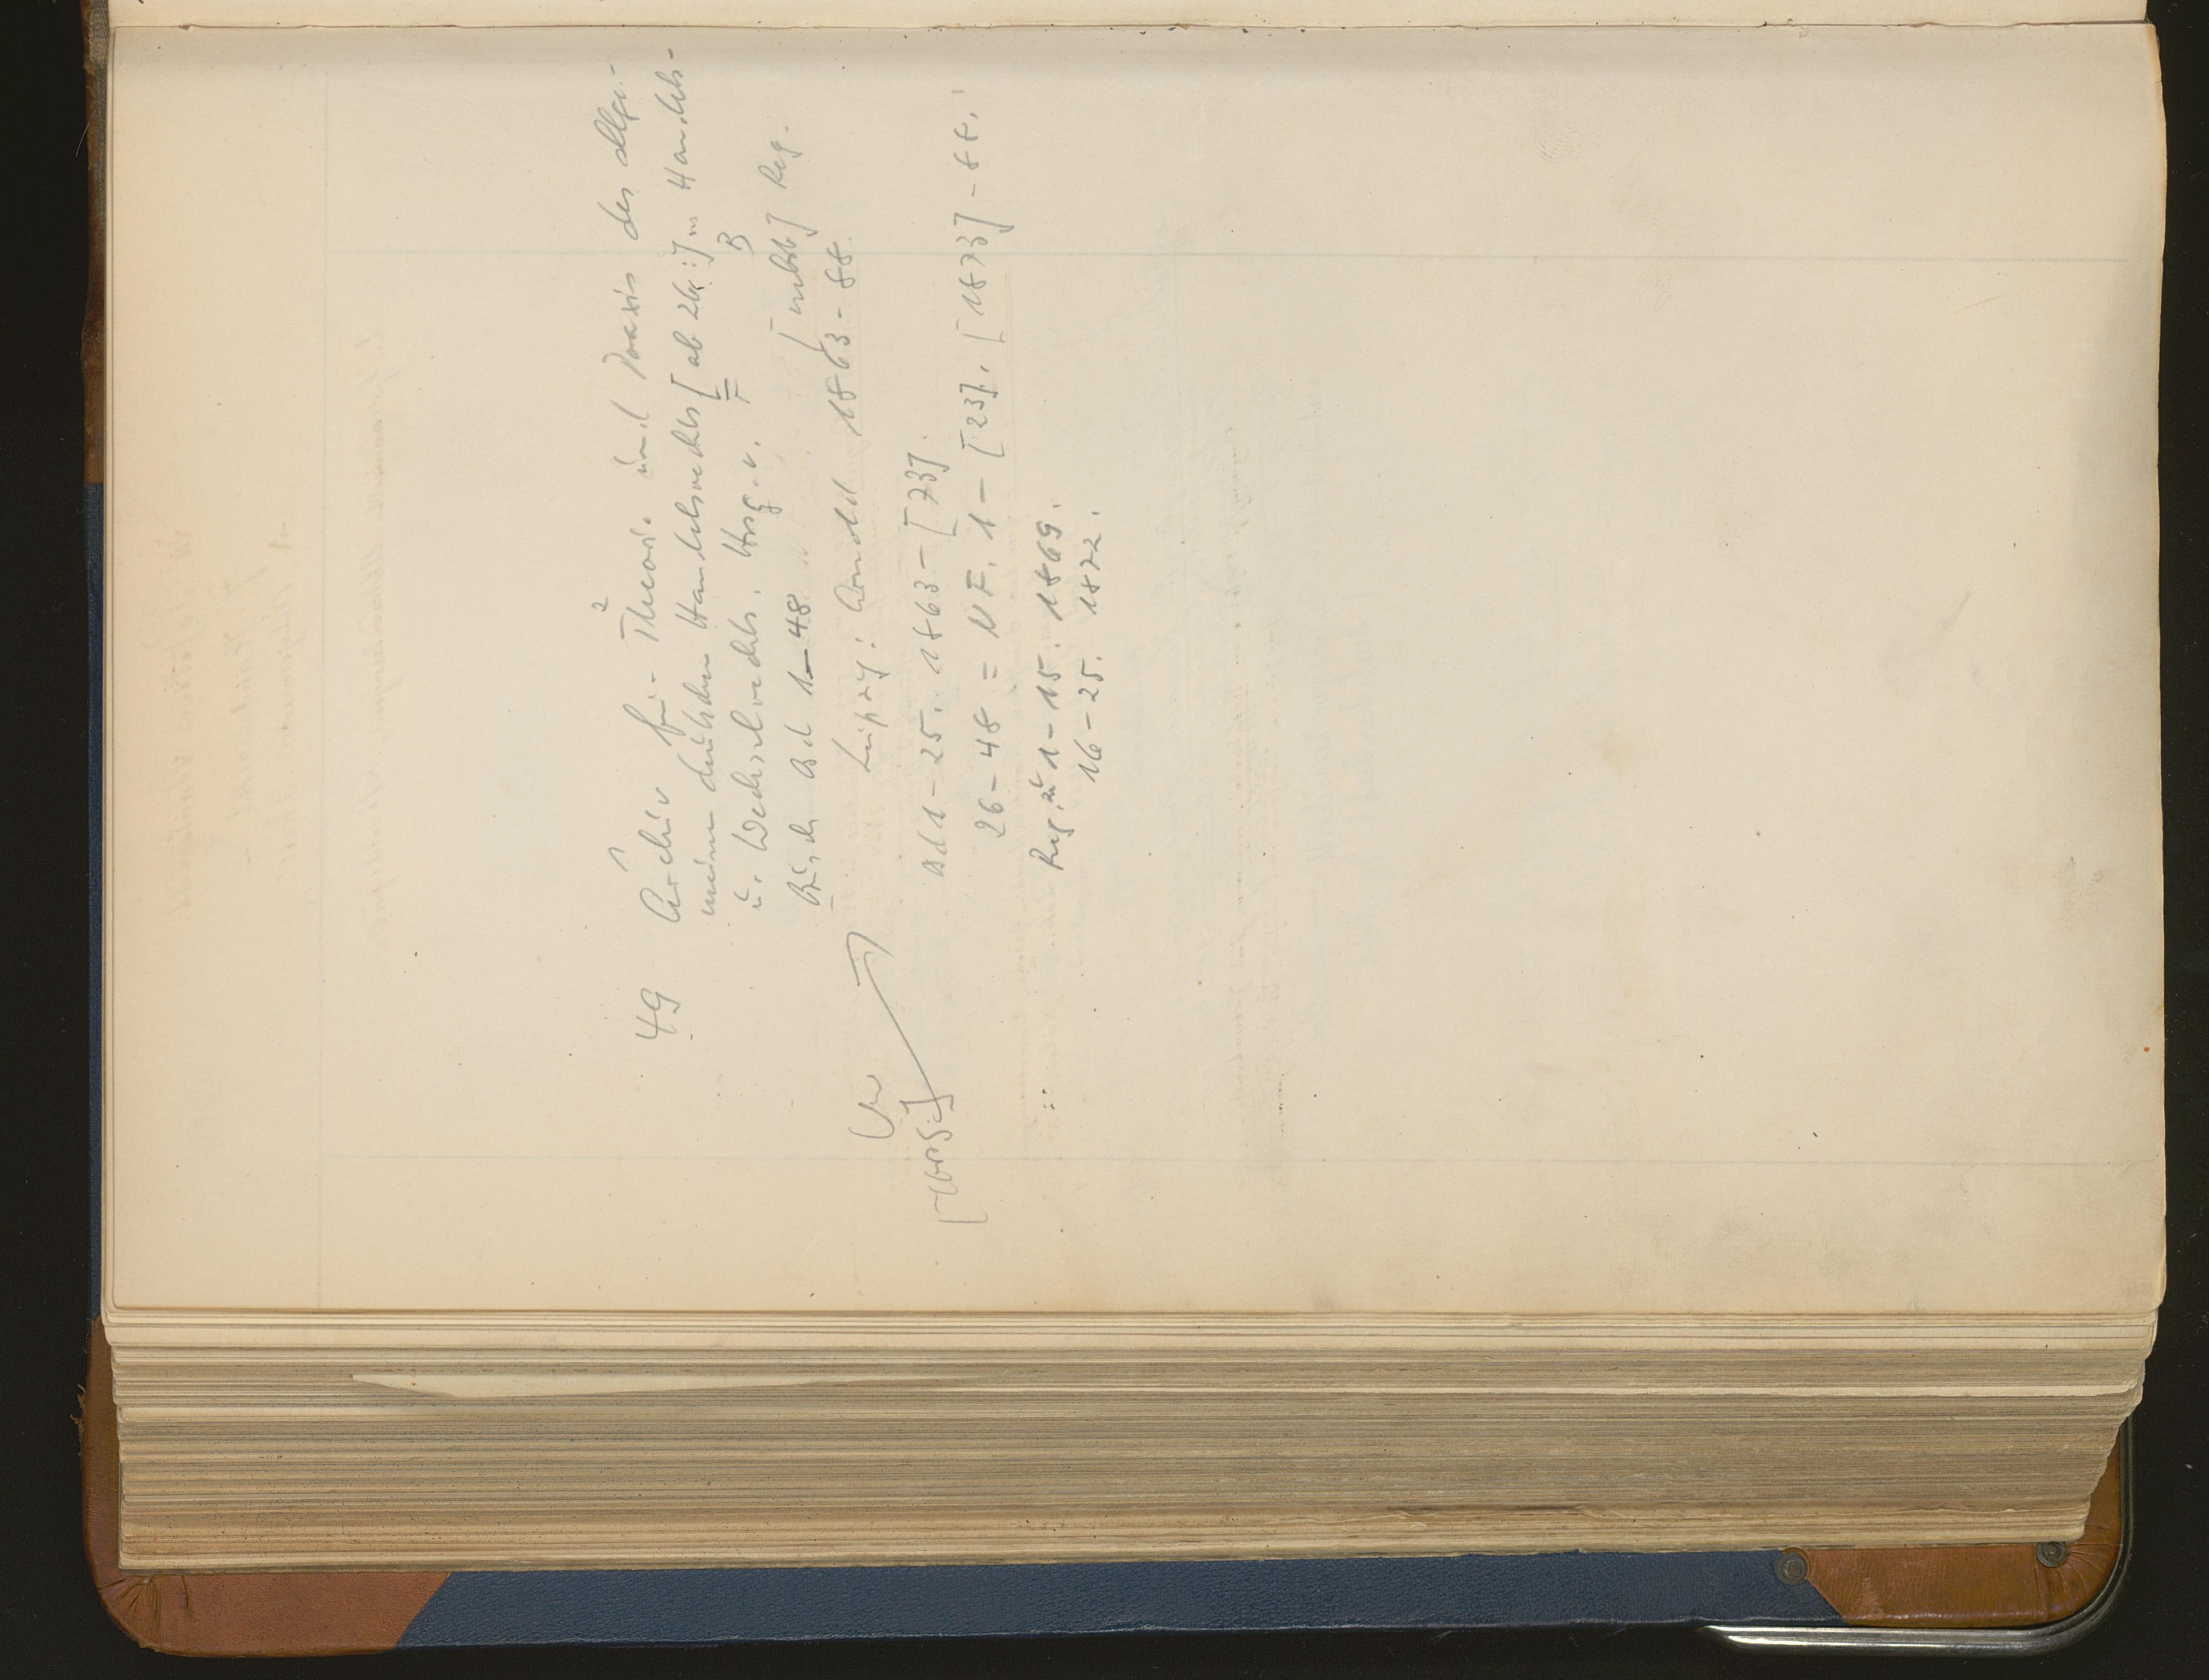 49 Archiv für Theorie und Praxis des allge-
meinen deutschen Handelsrechts [ab 26:] … Handels-
u. Wechselrechts. Hrsg. v. F. B.
Busch. Bd 1-48 [nebst] Reg.
Leipzig: Arnold 1863-88.
Bd 1-25. 1863-[73].
26-48 = NF. 1-[23]. [1873]-88.
Reg. zu 1-15. 1869.
16-25. 1872.